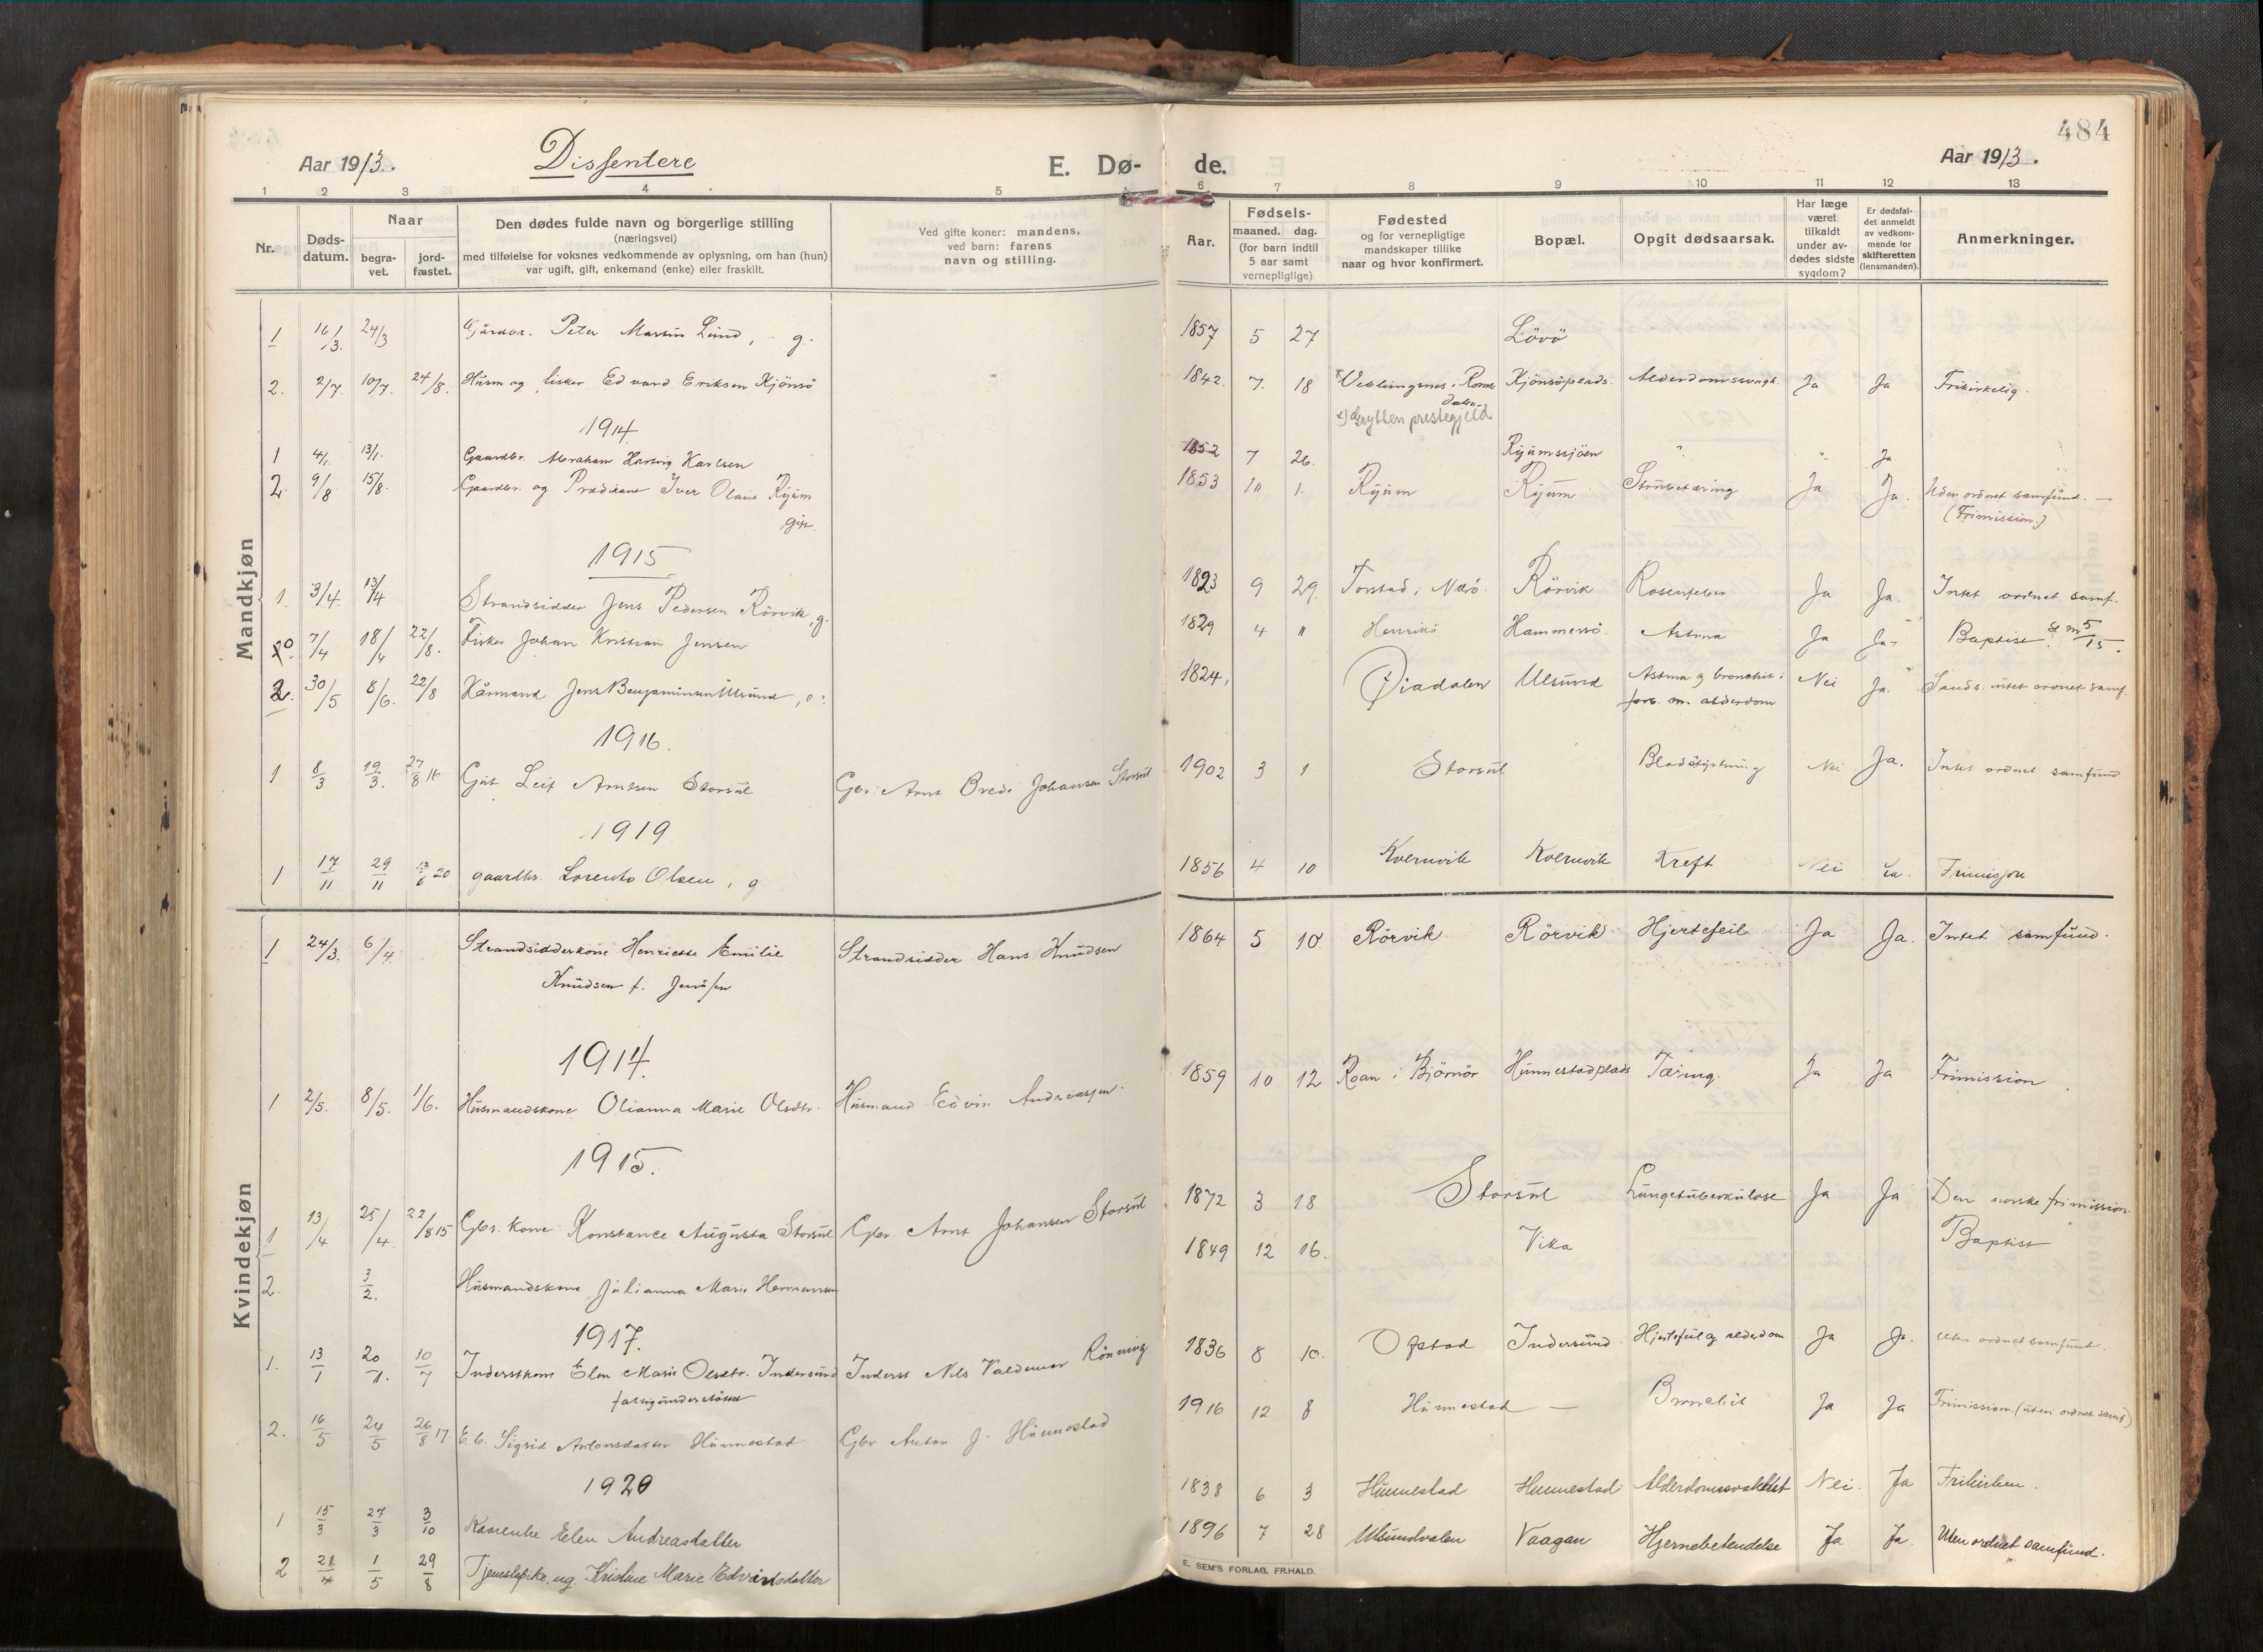 484
Aar 1913. Dissentere E. Dø- de. Aar 1913.
1 2 3 4 5 6 7 8 9 10 11 12 13
Nr. Døds-datum. Naar begra-vet. jord-fæstet. Den dødes fulde navn og borgerlige stilling (næringsvei) med tilføielse for voksnes vedkommende av oplysning, om han (hun) var ugift, gift, enkemand (enke) eller fraskilt. Ved gifte koner: mandens, ved barn: farens navn og stilling. Aar. Fødsels- maaned. dag. (for barn indtil 5 aar samt vernepligtige) Fødested og for vernepligtige mandskaper tillike naar og hvor konfirmert. Bopæl. Opgit dødsaarsak. Har læge været tilkaldt under av-dødes sidste sygdom? Er dødsfal-det anmeldt av vedkom-mende for skifteretten (lensmanden). Anmerkninger.
Mandkjøn
1 16/3. 24/3 Gårdbr. Peter Martin Lund, g. 1857 5 27 Lövö
2. 2/7 10/7. 24/8. Husm og fisker Edvard Eriksen Kjönsö 1842. 7. 18 Veblungsnes i Roms Kjönsöplads. Ja Ja Frikirkelig.
dalen
x) Grytten prestegjeld
1914
1 4/1. 13/1. Gaardbr. Abraham Hartvig Karlsen 1852 7 26. Ryumssjöen " " Ja
2. 9/8 15/8. Gaardbr. og Prædikant Iver Olaus Ryum 1853 10 1. Ryum Ryum Strubetæring Ja Ja. Uden ordnet samfund. —
gift. (Frimission.)
1915
1. 3/4. 13/4 Strandsidder Jens Pedersen Rörvik, g. 1823 9 29. Torstad i Nærö. Rörvik Rosenfeber Ja Ja. Intet ordnet samf.
7/4 18/4 22/8. Fisker Johan Kristian Jensen 1829 4 11 Henrikö Hammersö Astma Ja Ja Baptist
2. 30/5 8/6. 22/8 Kårmand Jens Benjaminsen Ulsund, e: 1824, Öiadalen Ulsund Astma og bronchit i Nei Ja. intet ordnet samf.
forb. m. alderdom
1916.
1 8/3 19/3. 27/8 16 Gut Leif Arntsen Storsul Gbr. Arnt Brede Johansen Storsul 1902 3 1 Storsul Blodstyrtning Nei Ja. Intet ordnet samfund
1919
1 17/11 29/11 13/6 20 gaardbr. Lorents Olsen, g 1856 4 10 Kvernvik Kvernvik Kreft Nei Ja. Frimisjon
Kvindekjøn
1 24/3. 6/4 Strandsidderkone Henriette Emilie Strandsidder Hans Knudsen 1864 5 10. Rörvik Rörvik Hjertefeil Ja Ja. Intet samfund.
Knudsen f. Jensen
1914.
1 2/5. 8/5. 1/6. Husmandskone Olianna Marie Olsdtr. Husmand Edvin Andreassen 1859 10 12 Roan i Björnör Hunnestadplads Tæring. Ja Ja Frimission.
1915.
1 13/4 25/4 22/8 15 Gbr. kone Konstance Augusta Storsul Gbr. Arnt Johansen Storsul 1872 3 18 Storsul Lungetuberkulose Ja Ja Den norske frimission.
2. 3/2. Husmandskone Julianna Marie Hermansen 1849 12 16. Vika Baptist
1917.
1. 13/1 20/1. 10/7 Inderstkone Elen Marie Olsdtr. Indersund Inderst Nils Valdemar Rönning 1836 8 10. Ofstad Indersund Hjertefeil og alderdom Ja Ja. uten ordnet samfund.
fattigunderstöttet
2. 16/5 24/5 26/8 17. E. b. Sigrid Antonsdatter Hunnestad Gbr Anton J. Hunnestad 1916 12 8 Hunnestad — Bronchit Ja Ja Frimission. (uten ordnet samf)
1920
1 15/3 27/3 3/10 Kaarenke Elen Andreasdatter 1838 6 3 Hunnestad Hunnestad Alderdomssvakhet Nei. Ja Frikirken.
2 21/4 1/5 29/8 Tjenestepike, ug. Kristine Marie Edvindsdatter 1896 7 28 Ulsundvalen Vaagan Hjernebetendelse Ja Ja. Uten ordnet samfund.
E. SEM'S FORLAG, FR.HALD.